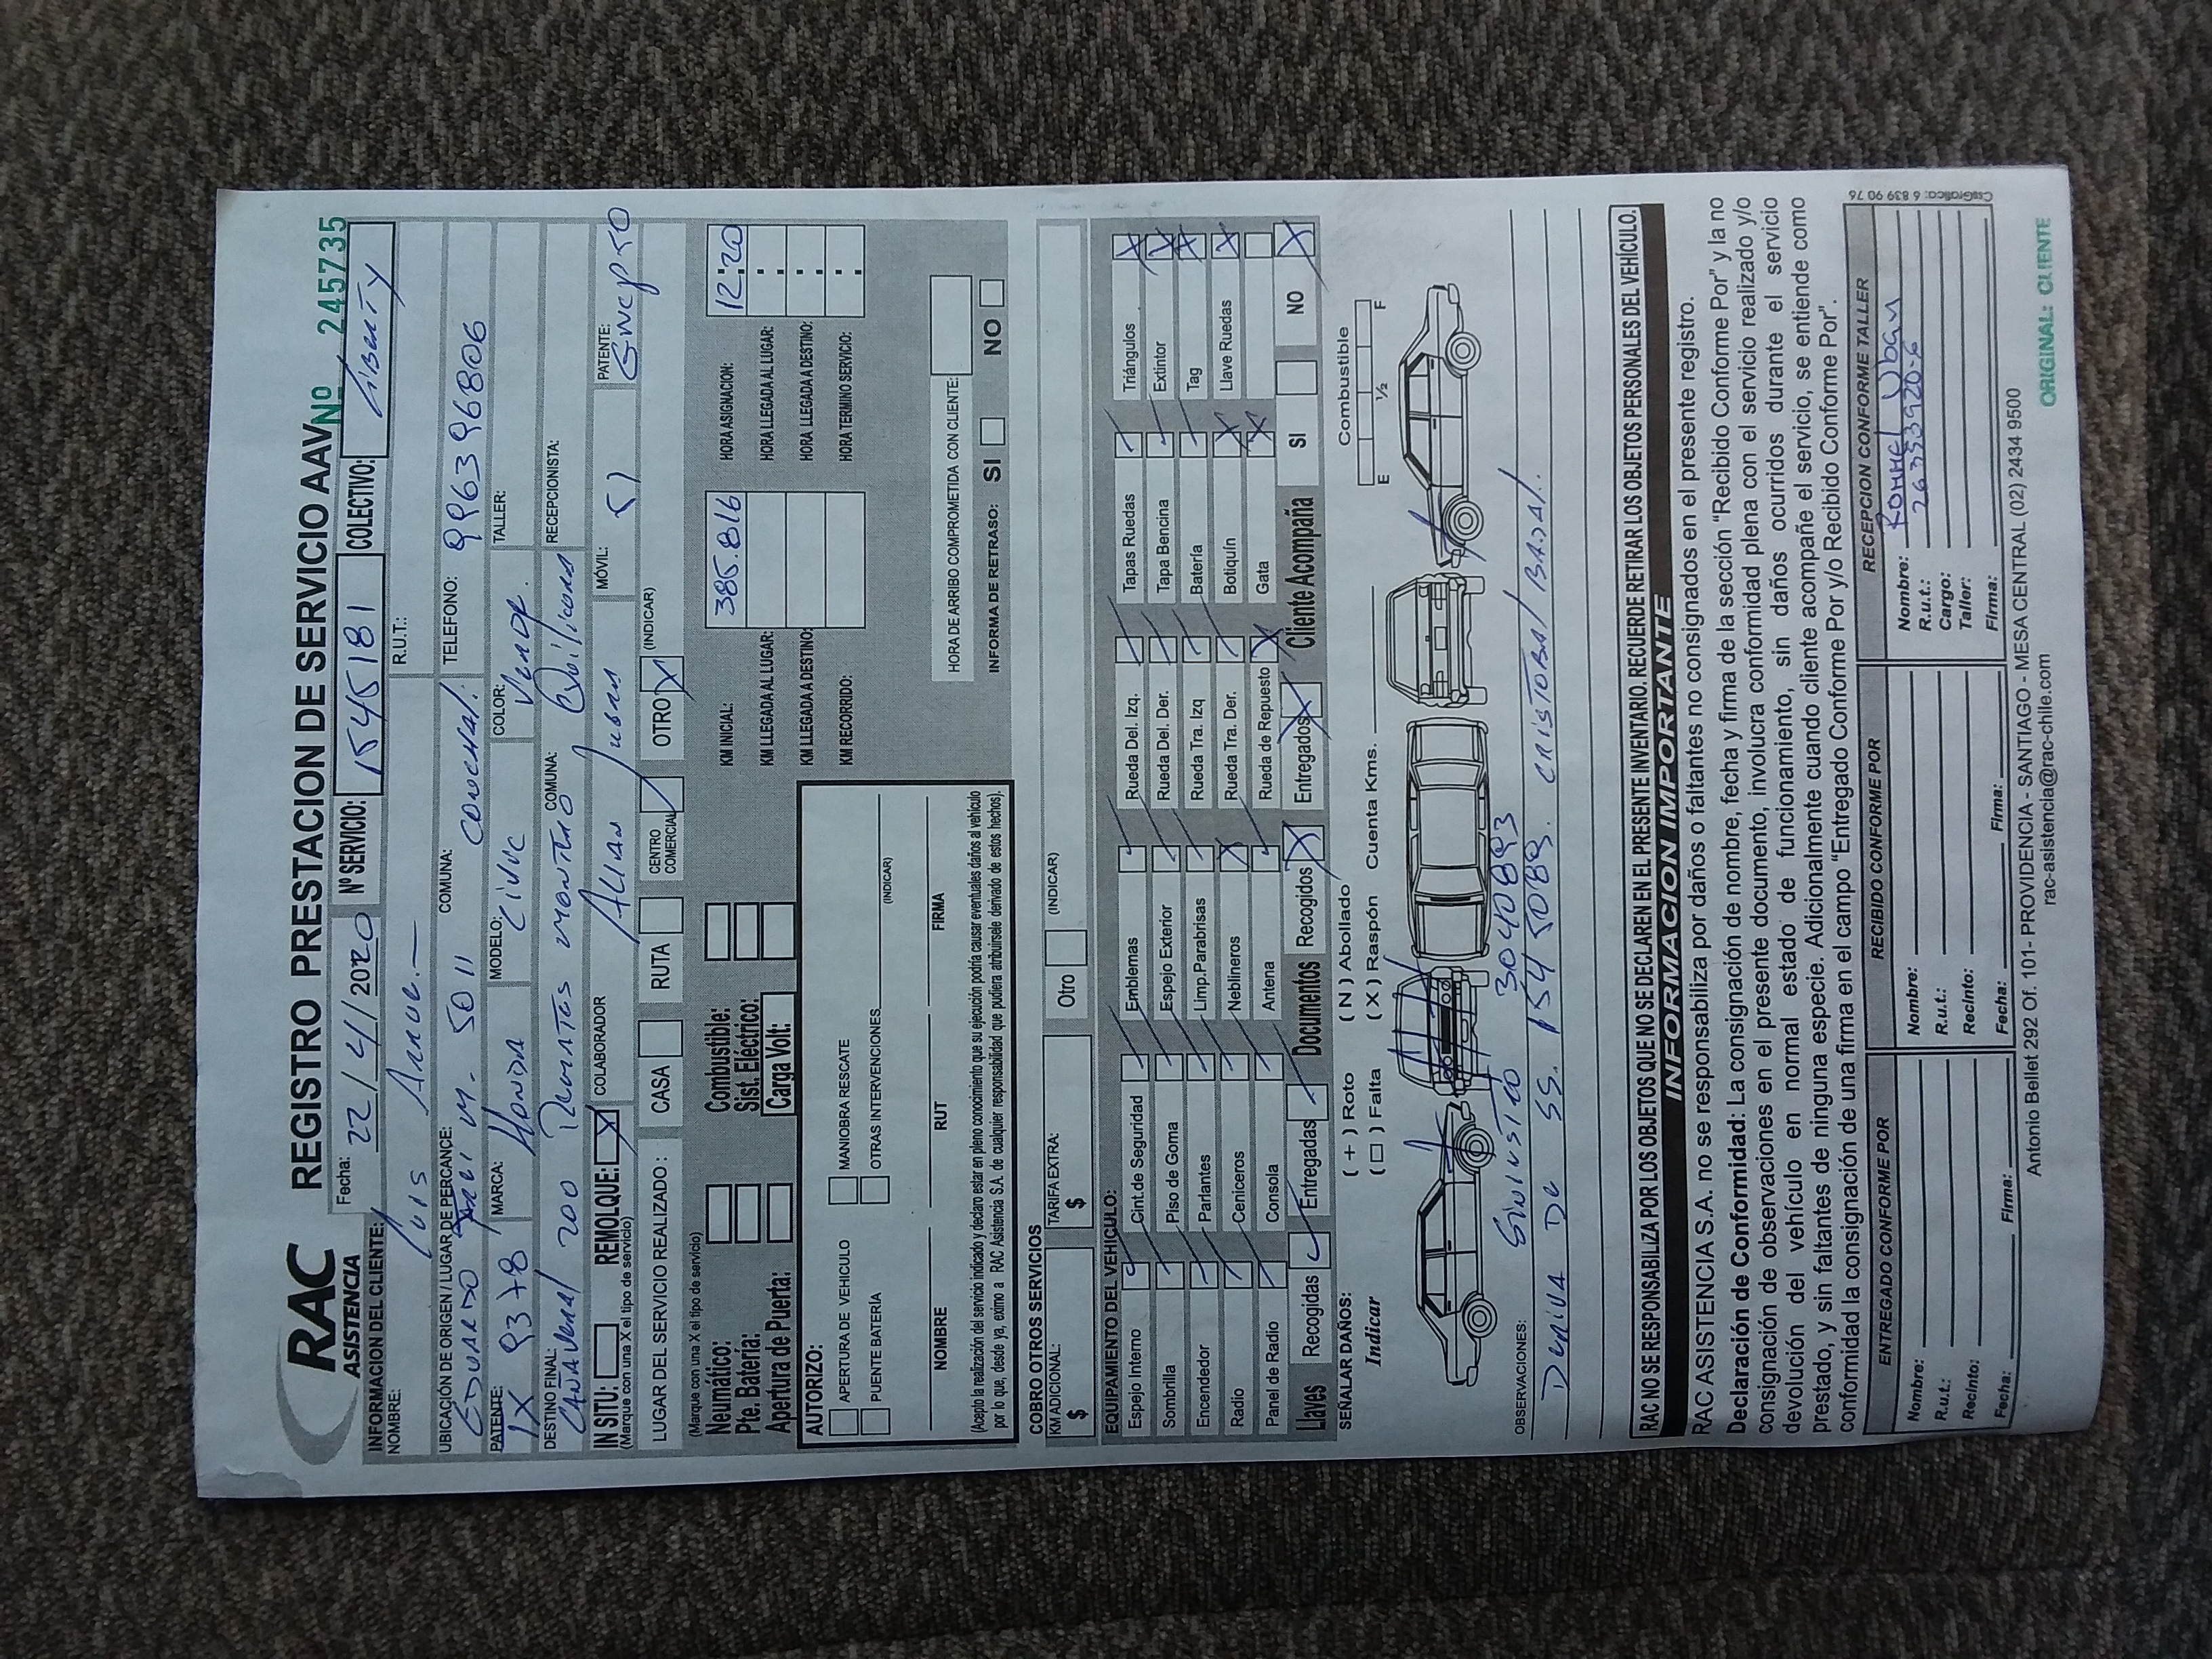 RAC
ASISTENCIA
REGISTRO PRESTACION DE SERVICIO AAV Nº 245735
Fecha: 22/4/2020 Nº SERVICIO: 1545181 COLECTIVO: Liberty
INFORMACION DEL CLIENTE:
NOMBRE: Luis R.U.T.:
UBICACIÓN DE ORIGEN / LUGAR DE PERCANCE: COMUNA: TELEFONO:
EDUARDO M. 5011 Conchalí. 996396806
PATENTE: MARCA: MODELO: COLOR: TALLER:
IX 9378 HONDA CIVIC Verde.
DESTINO FINAL: COMUNA: RECEPCIONISTA:
CAÑAVERAL 200 MONTERO Quilicura
IN SITU: REMOLQUE: X COLABORADOR MÓVIL: PATENTE:
(Marque con una X el tipo de servicio)
Allan 51
LUGAR DEL SERVICIO REALIZADO: CASA RUTA CENTRO COMERCIAL OTRO X (INDICAR)
(Marque con una X el tipo de servicio)
Neumático: Combustible: KM INICIAL: 385.816 HORA ASIGNACION: 12:20
Pte. Batería: Sist. Eléctrico: KM LLEGADA AL LUGAR: HORA LLEGADA AL LUGAR:
Apertura de Puerta: Carga Volt: KM LLEGADA A DESTINO: HORA LLEGADA A DESTINO:
KM RECORRIDO: HORA TERMINO SERVICIO:
AUTORIZO:
APERTURA DE VEHICULO MANIOBRA RESCATE
PUENTE BATERÍA OTRAS INTERVENCIONES (INDICAR)
HORA DE ARRIBO COMPROMETIDA CON CLIENTE:
NOMBRE RUT FIRMA
INFORMA DE RETRASO: SI NO
(Acepto la realización del servicio indicado y declaro estar en pleno conocimiento que su ejecución podría causar eventuales daños al vehículo
por lo que, desde ya, eximo a RAC Asistencia S.A. de cualquier responsabilidad que pudiera atribuirsele derivado de estos hechos).
COBRO OTROS SERVICIOS
KM ADICIONAL: $ TARIFA EXTRA: $ Otro (INDICAR)
EQUIPAMIENTO DEL VEHICULO:
Espejo Interno Cint.de Seguridad Emblemas Rueda Del. Izq. Tapas Ruedas Triángulos X
Sombrilla Piso de Goma Espejo Exterior Rueda Del. Der. Tapa Bencina Extintor X
Encendedor Parlantes Limp.Parabrisas Rueda Tra. Izq Batería Tag X
Radio Ceniceros Neblineros X Rueda Tra. Der. Botiquín X Llave Ruedas X
Panel de Radio Consola Antena Rueda de Repuesto X Gata X
Llaves Recogidas Entregadas Documentos Recogidos X Entregados X Cliente Acompaña SI NO X
SEÑALAR DAÑOS: ( + ) Roto ( N ) Abollado
Indicar ( □ ) Falta ( X ) Raspón Cuenta Kms.
Combustible
E ½ F
OBSERVACIONES: Siniestro 3040893
Deriva De SS. 1545089. CRISTOBAL BAZAL.
RAC NO SE RESPONSABILIZA POR LOS OBJETOS QUE NO SE DECLAREN EN EL PRESENTE INVENTARIO. RECUERDE RETIRAR LOS OBJETOS PERSONALES DEL VEHÍCULO.
INFORMACION IMPORTANTE
RAC ASISTENCIA S.A. no se responsabiliza por daños o faltantes no consignados en el presente registro.
Declaración de Conformidad: La consignación de nombre, fecha y firma de la sección "Recibido Conforme Por" y la no
consignación de observaciones en el presente documento, involucra conformidad plena con el servicio realizado y/o
devolución del vehículo en normal estado de funcionamiento, sin daños ocurridos durante el servicio
prestado, y sin faltantes de ninguna especie. Adicionalmente cuando cliente acompañe el servicio, se entiende como
conformidad la consignación de una firma en el campo "Entregado Conforme Por y/o Recibido Conforme Por".
ENTREGADO CONFORME POR RECIBIDO CONFORME POR RECEPCION CONFORME TALLER
Nombre: Nombre: Nombre: Rommel
R.u.t.: R.u.t.: R.u.t.: 26353920-6
Recinto: Recinto: Cargo:
Taller:
Fecha: Firma: Fecha: Firma: Firma:
CssGrafica: 6 839 90 76
Antonio Bellet 292 Of. 101- PROVIDENCIA - SANTIAGO - MESA CENTRAL (02) 2434 9500
rac-asistencia@rac-chile.com
ORIGINAL: CLIENTE